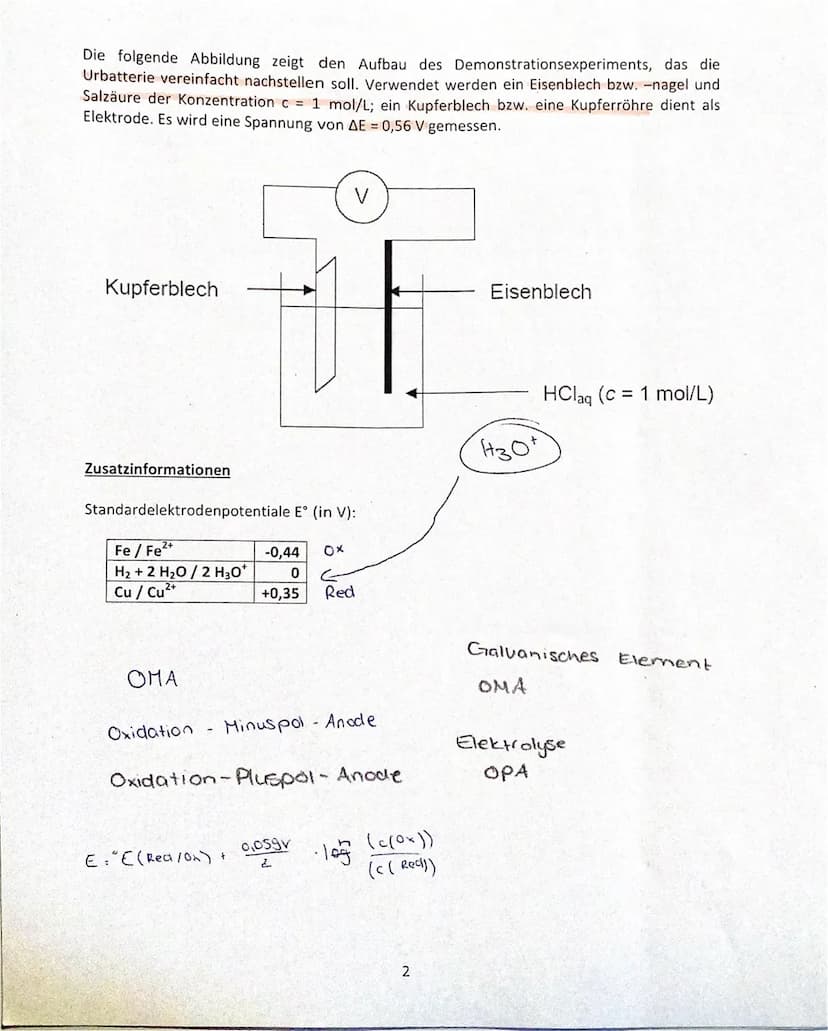 Die folgende Abbildung zeigt den Aufbau des Demonstrationsexperiments, das die
Urbatterie vereinfacht nachstellen soll. Verwendet werden ein Eisenblech bzw. –nagel und
Salzäure der Konzentration c = 1 mol/L; ein Kupferblech bzw. eine Kupferröhre dient als
Elektrode. Es wird eine Spannung von ΔE = 0,56 V gemessen.
V
Kupferblech
Eisenblech
HClaq (c = 1 mol/L)
H3O⁺
Zusatzinformationen
Standardelektrodenpotentiale E° (in V):
Fe / Fe²⁺ -0,44 Ox
H₂ + 2 H₂O / 2 H₃O⁺ 0
Cu / Cu²⁺ +0,35 Red
Galvanisches Element
OMA
OMA
Oxidation - Minuspol - Anode
Elektrolyse
Oxidation - Pluspol - Anode
OPA
E = °E (Red/Ox) + 0,059V/z · log (c(Ox))/(c(Red))
2